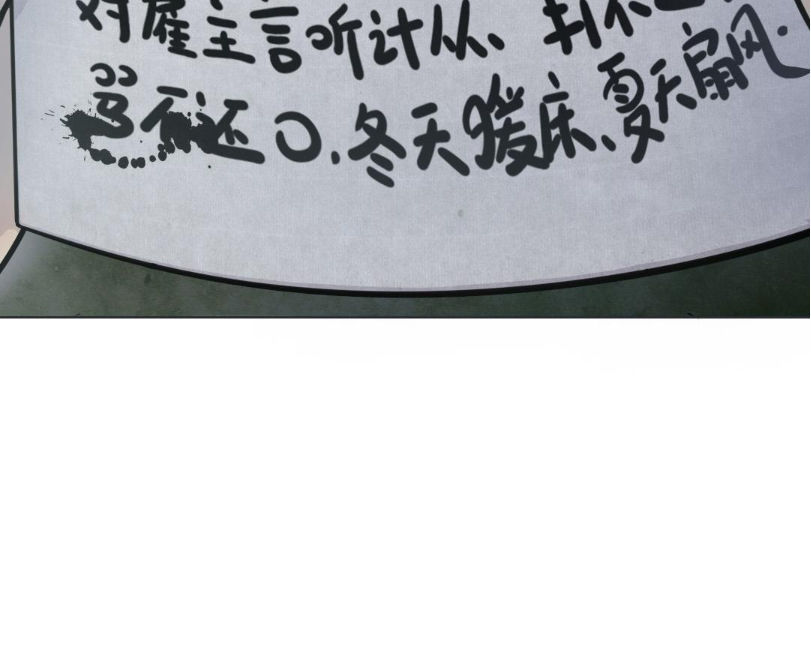 对雇主言听计从、打不还
骂不还口.冬天暖床、夏天扇风.